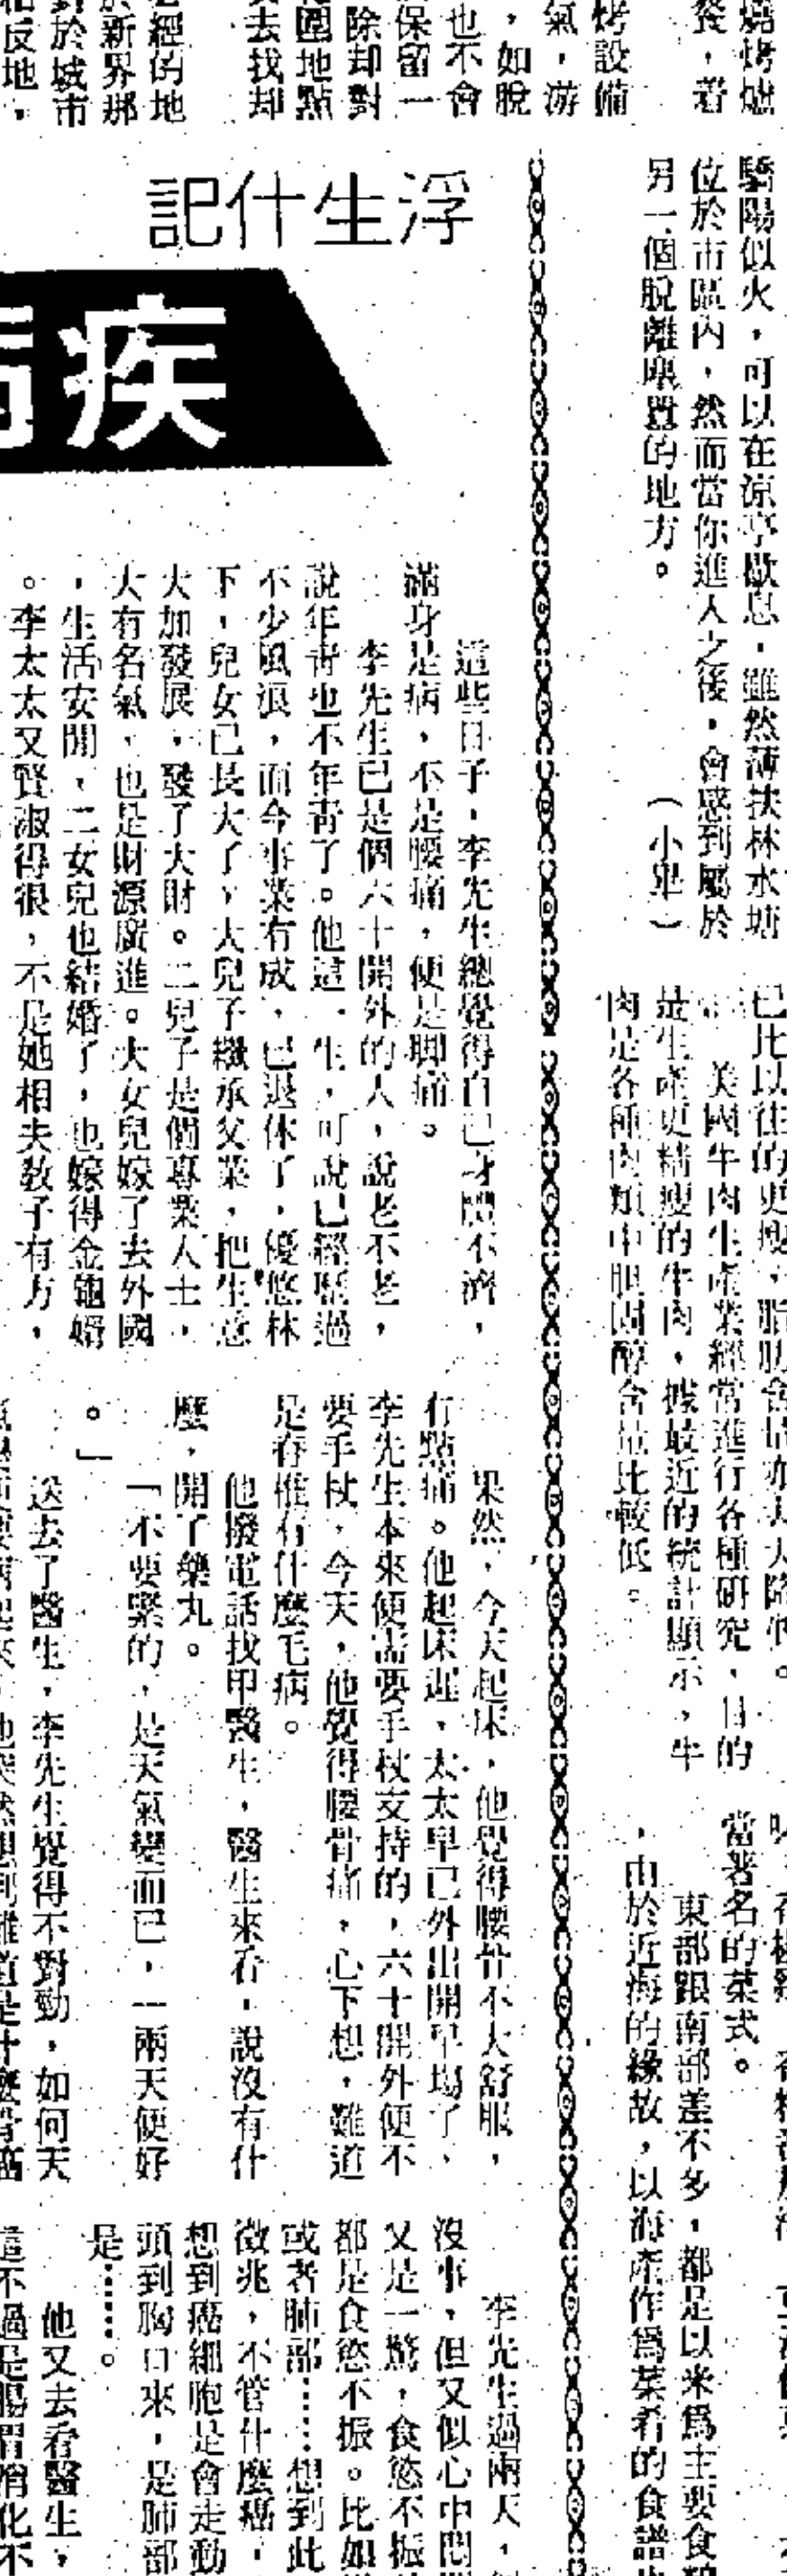 燒烤爐
餐，若
烤設備
氣，游
，如脫
也不會
保留一
除却對
圍地點
去找却
經的地
新界那
對於城市
相反地，
驕陽似火，可以在涼亭歇息，雖然薄扶林水塘
位於市區內，然而當你進入之後，會感到屬於
另一個脫離塵囂的地方。　（小卑）
已比以往的更瘦，脂肪含量亦大大降低。
美國牛肉生產業經常進行各種研究，目的
是生產更精瘦的牛肉，據最近的統計顯示，牛
肉是各種肉類中胆固醇含量比較低。
當著名的菜式。
東部跟南部差不多，都是以米爲主要食糧
，由於近海的緣故，以海產作爲菜肴的食譜
浮生什記
疾
這些日子，李先生總覺得自己身體不濟，
滿身是病，不是腰痛，便是脚痛。
李先生已是個六十開外的人，說老不老，
說年青也不年青了。他這一生，可說已經歷過
不少風浪，而今事業有成，已退休了，優悠林
下，兒女已長大了，大兒子繼承父業，把生意
大加發展，發了大財。二兒子是個專業人士，
大有名氣，也是財源廣進。大女兒嫁了去外國
，生活安閒，二女兒也結婚了，也嫁得金龜婿
。李太太又賢淑得很，不是她相夫教子有方，
果然，今天起床，他覺得腰骨不大舒服，
有點痛。他起床遲，太太早已外出開早場了，
李先生本來便需要手杖支持的，六十開外便不
要手杖，今天，他覺得腰骨痛，心下想，難道
是脊椎有什麼毛病。
他撥電話找甲醫生，醫生來看，說沒有什
麼，開了藥丸。
「不要緊的，是天氣變而已，一兩天便好
。」
送去了醫生，李先生覺得不對勁，如何天
氣變便要病起來，他突然想到難道是什麼骨癌
李先生過兩天，
沒事，但又似心中悶
又是一驚，食慾不振
都是食慾不振。比如
或者肺部……想到此
徵兆，不管什麼癌，
想到癌細胞是會走動
頭到胸口來，是肺部
是……。
他又去看醫生，
這不過是腸胃消化不